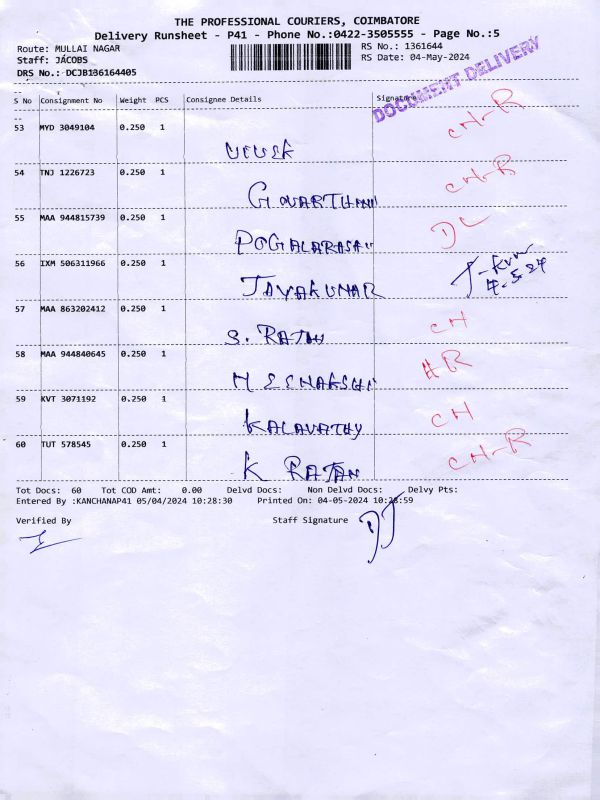 THE PROFESSIONAL COURIERS, COIMBATORE
Delivery Runsheet - P41 - Phone No.:0422-3505555 - Page No.:5
Route: MULLAI NAGAR RS No.: 1361644
Staff: JACOBS RS Date: 04-May-2024
DRS No.: DCJB136164405
DOCUMENT DELIVERY
S No Consignment No Weight PCS Consignee Details Signature
53 MYD 3049104 0.250 1 CH-R
54 TNJ 1226723 0.250 1 GOVARTHANI CH-R
55 MAA 944815739 0.250 1 POGALARASAN DL
56 IXM 506311966 0.250 1 JAYAKUMAR 4.5.24
57 MAA 863202412 0.250 1 S. RATAN CH
58 MAA 944840645 0.250 1 MEENAKSHI HR
59 KVT 3071192 0.250 1 KALAVATHY CH
60 TUT 578545 0.250 1 K RATAN CH-R
Tot Docs: 60 Tot COD Amt: 0.00 Delvd Docs: Non Delvd Docs: Delvy Pts:
Entered By :KANCHANAP41 05/04/2024 10:28:30 Printed On: 04-05-2024 10:28:59
Verified By Staff Signature